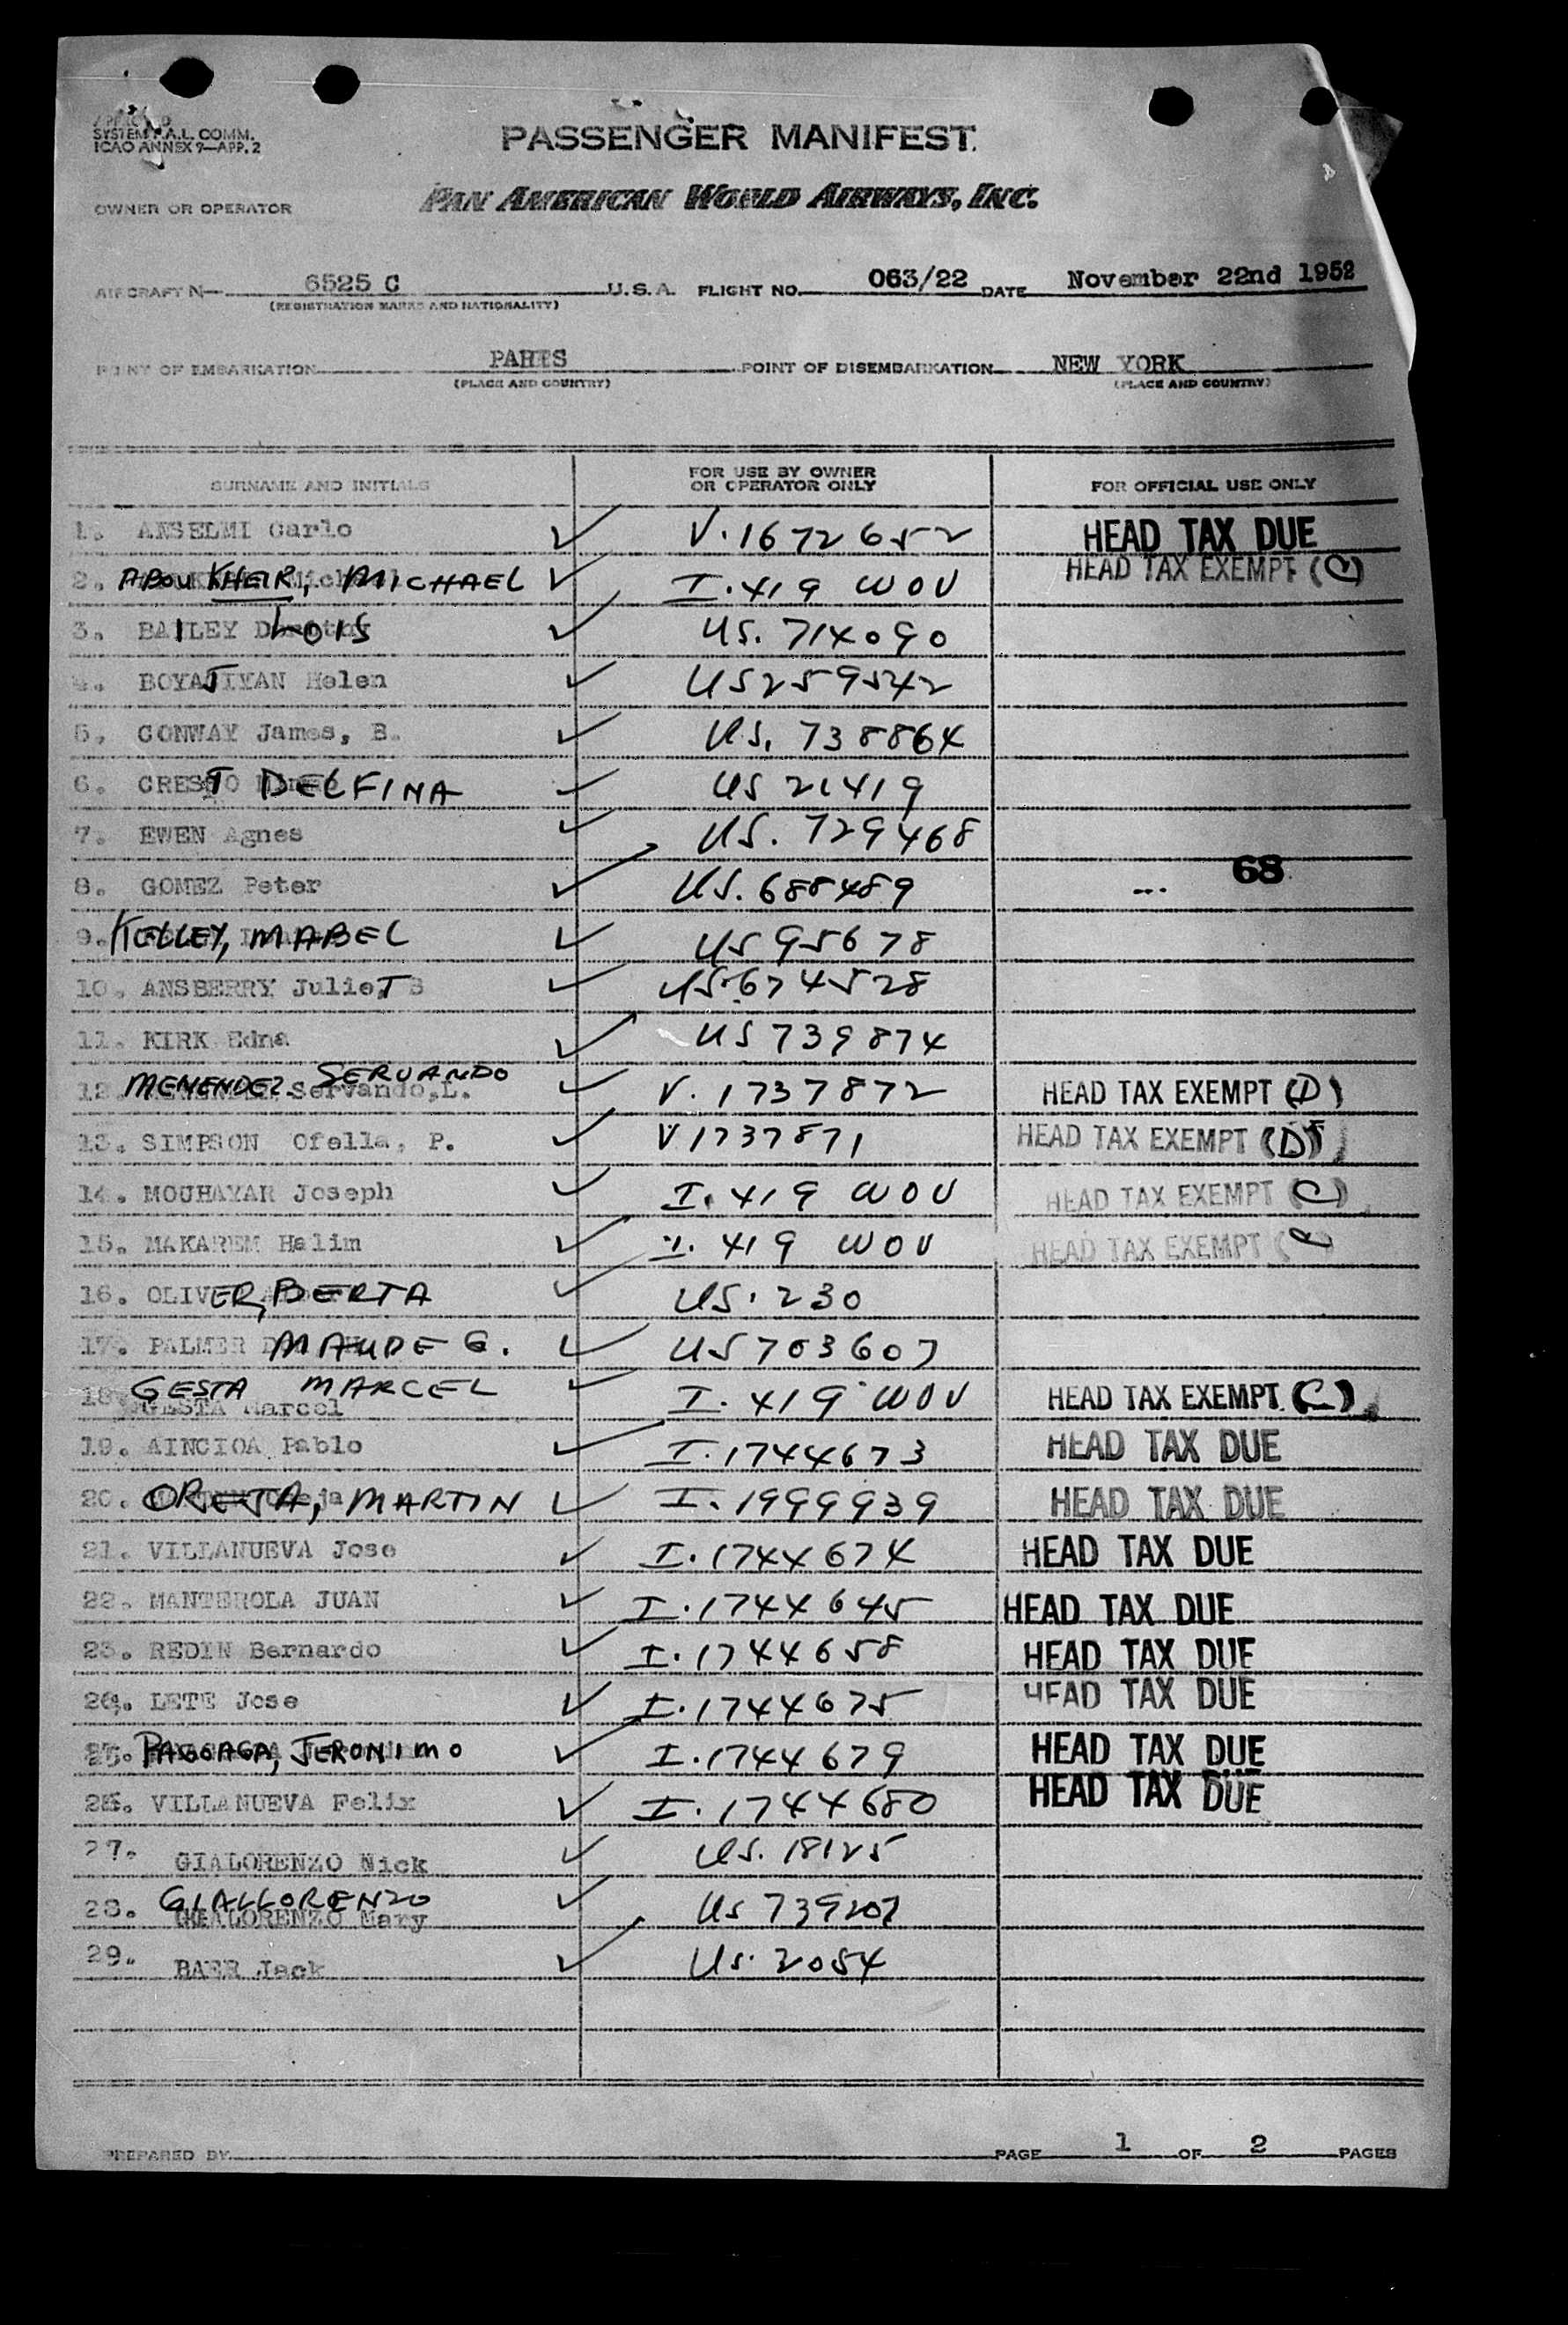 SYSTEM F.A.L. COMM.
ICAO ANNEX 9—APP. 2
PASSENGER MANIFEST
OWNER OR OPERATOR
PAN AMERICAN WORLD AIRWAYS, INC.
AIRCRAFT N— 6525 C U.S.A. FLIGHT NO. 063/22 DATE November 22nd 1952
(REGISTRATION MARKS AND NATIONALITY)
POINT OF EMBARKATION PARIS POINT OF DISEMBARKATION NEW YORK
(PLACE AND COUNTRY) (PLACE AND COUNTRY)
SURNAME AND INITIALS FOR USE BY OWNER OR OPERATOR ONLY FOR OFFICIAL USE ONLY
1. ANSELMI Carlo ✓ V.1672652 HEAD TAX DUE
2. ABOU KHEIR, MICHAEL ✓ I.419 WOV HEAD TAX EXEMPT (C)
3. BAILEY LOIS ✓ US. 714090
4. BOYAJIYAN Helen ✓ US259542
5. CONWAY James, B. ✓ US. 738864
6. CREST DELFINA ✓ US 21419
7. EWEN Agnes ✓ US. 729468
8. GOMEZ Peter ✓ US. 688489 68
9. KELLEY, MABEL ✓ US 95678
10. ANSBERRY Juliet ✓ US.674528
11. KIRK Edna ✓ US 739874
12. MENENDEZ SERVANDO Servando, L. ✓ V. 1737872 HEAD TAX EXEMPT (D)
13. SIMPSON Ofella, P. ✓ V1737871 HEAD TAX EXEMPT (D)
14. MOUHAYAR Joseph ✓ I. 419 WOV HEAD TAX EXEMPT (C)
15. MAKAREM Halim ✓ I. 419 WOV HEAD TAX EXEMPT (C)
16. OLIVER, BERTA ✓ US. 230
17. PALMER MAUDE G. ✓ US 703607
18. GESTA MARCEL ✓ I. 419 WOV HEAD TAX EXEMPT (C)
GESTA Marcel
19. AINCIOA Pablo ✓ I.1744673 HEAD TAX DUE
20. OREJA, MARTIN ✓ I.1999939 HEAD TAX DUE
21. VILLANUEVA Jose ✓ I.1744674 HEAD TAX DUE
22. MANTEROLA JUAN ✓ I.1744645 HEAD TAX DUE
23. REDIN Bernardo ✓ I.1744658 HEAD TAX DUE
24. LETE Jose ✓ I.1744675 HEAD TAX DUE
25. PAGOAGA, JERONIMO ✓ I.1744679 HEAD TAX DUE
26. VILLANUEVA Felix ✓ I.1744680 HEAD TAX DUE
27. GIALORENZO Nick ✓ US. 18125
28. GIALLORENZO ✓ US 739207
GIALORENZO Mary
29. BAER Jack ✓ US. 2054
PREPARED BY PAGE 1 OF 2 PAGES